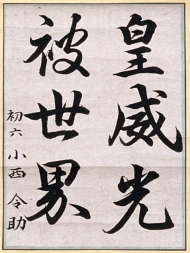 皇威光
被世界
初六 小西令助